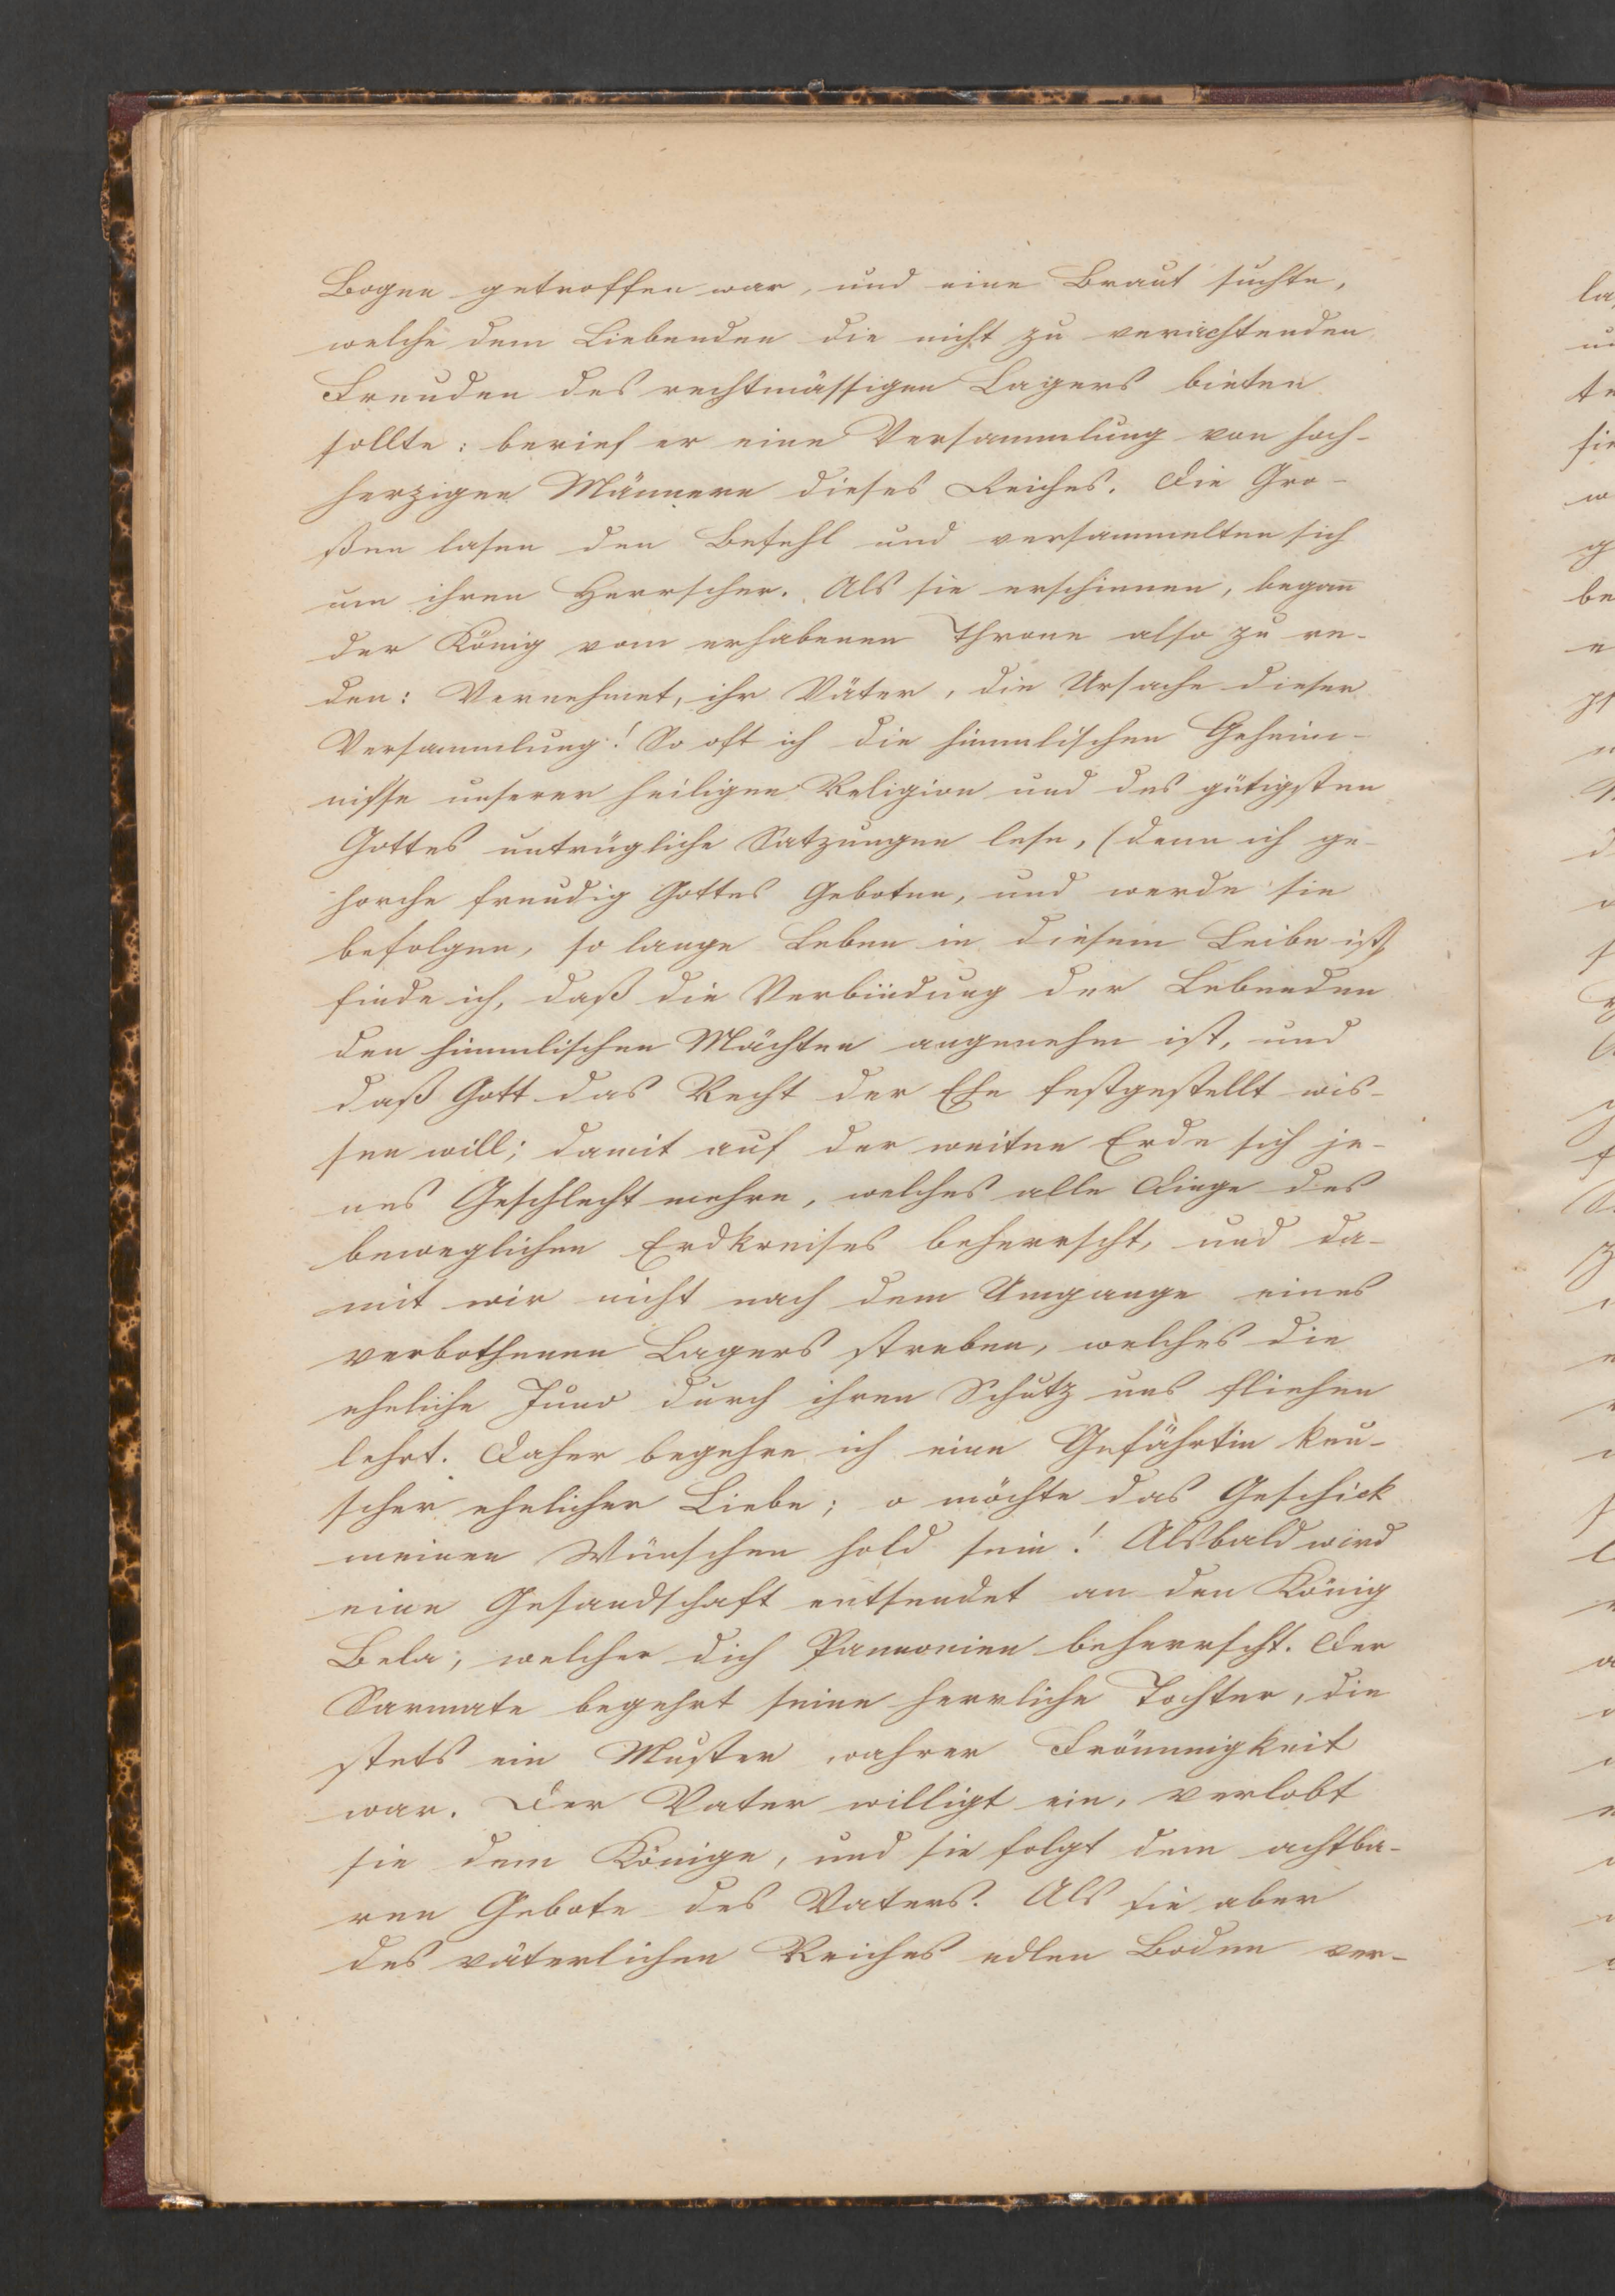 Bogen getroffen war, und eine Braut suchte,
welche dem Liebenden die nicht zu verachtenden
Freuden des rechtmässigen Lagers bieten
sollte: berief er eine Versammlung von hoch-
herzigen Männern dieses Reiches. Die Gro-
ßen lasen den Befehl und versammelten sich
um ihren Herrscher. Als sie erschienen, begañ
der König vom erhabenen Throne also zu re-
den: Vernehmet, ihr Väter, die Ursache dieser
Versammlung! So oft ich die himmlischen Geheim-
nisse unserer heiligen Religion und des gütigsten
Gottes untrügliche Satzungen lese, (denn ich ge-
horche freudig Gottes Geboten, und werde sie
befolgen, so lange Leben in diesem Leibe ist)
finde ich, daß die Verbindung der Lebenden
den himmlischen Mächten angenehm ist, und
daß Gott das Recht der Ehe festgestellt wis-
sen will; damit auf der weiten Erde sich je-
nes Geschlecht mehre, welches alle Dinge des
beweglichen Erdkreises beherrscht, und da-
mit wir nicht nach dem Umgange eines
verbothenen Lagers streben, welches die
eheliche Juno durch ihren Schutz uns fliehen
lehrt. Daher begehre ich eine Gefährtin keu-
scher ehelicher Liebe; o möchte das Geschick
meinen Wünschen hold sein! Alsbald wird
eine Gesandschaft entsendet an den König
Bela, welcher dich Pannonien beherrscht. Der
Sarmate begehrt seine herrliche Tochter, die
stets ein Muster wahrer Frömmigkeit
war. Der Vater willigt ein, verlobt
sie dem Könige, und sie folgt dem achtba-
ren Gebote des Vaters. Als sie aber
des väterlichen Reiches edlen Boden ver-